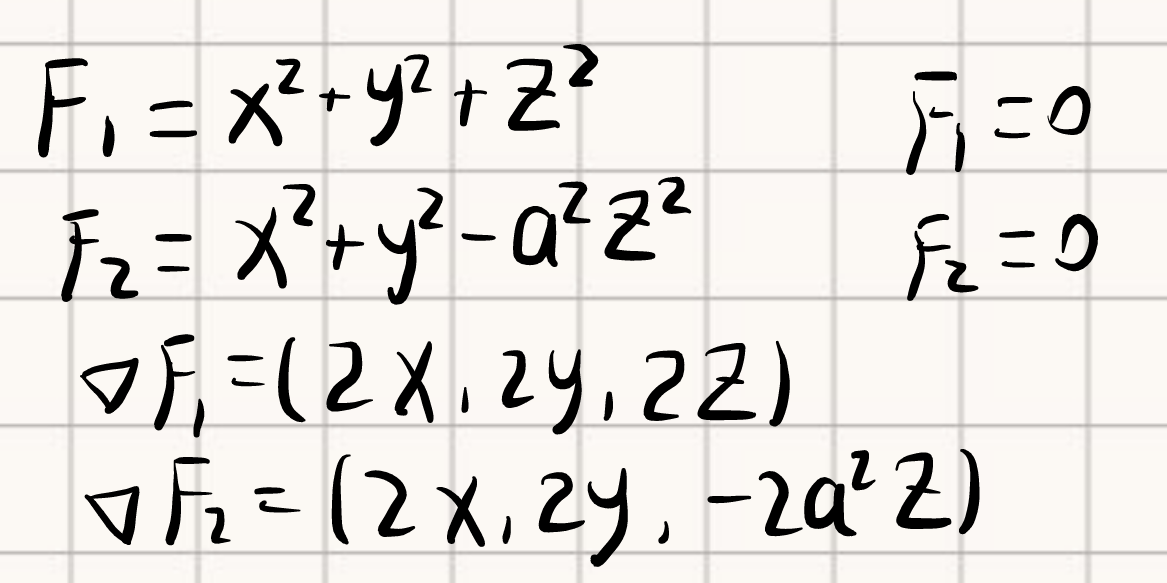 F₁ = x² + y² + z² F₁ = 0
F₂ = x² + y² - a² z² F₂ = 0
∇F₁ = (2x, 2y, 2z)
∇F₂ = (2x, 2y, -2a² z)